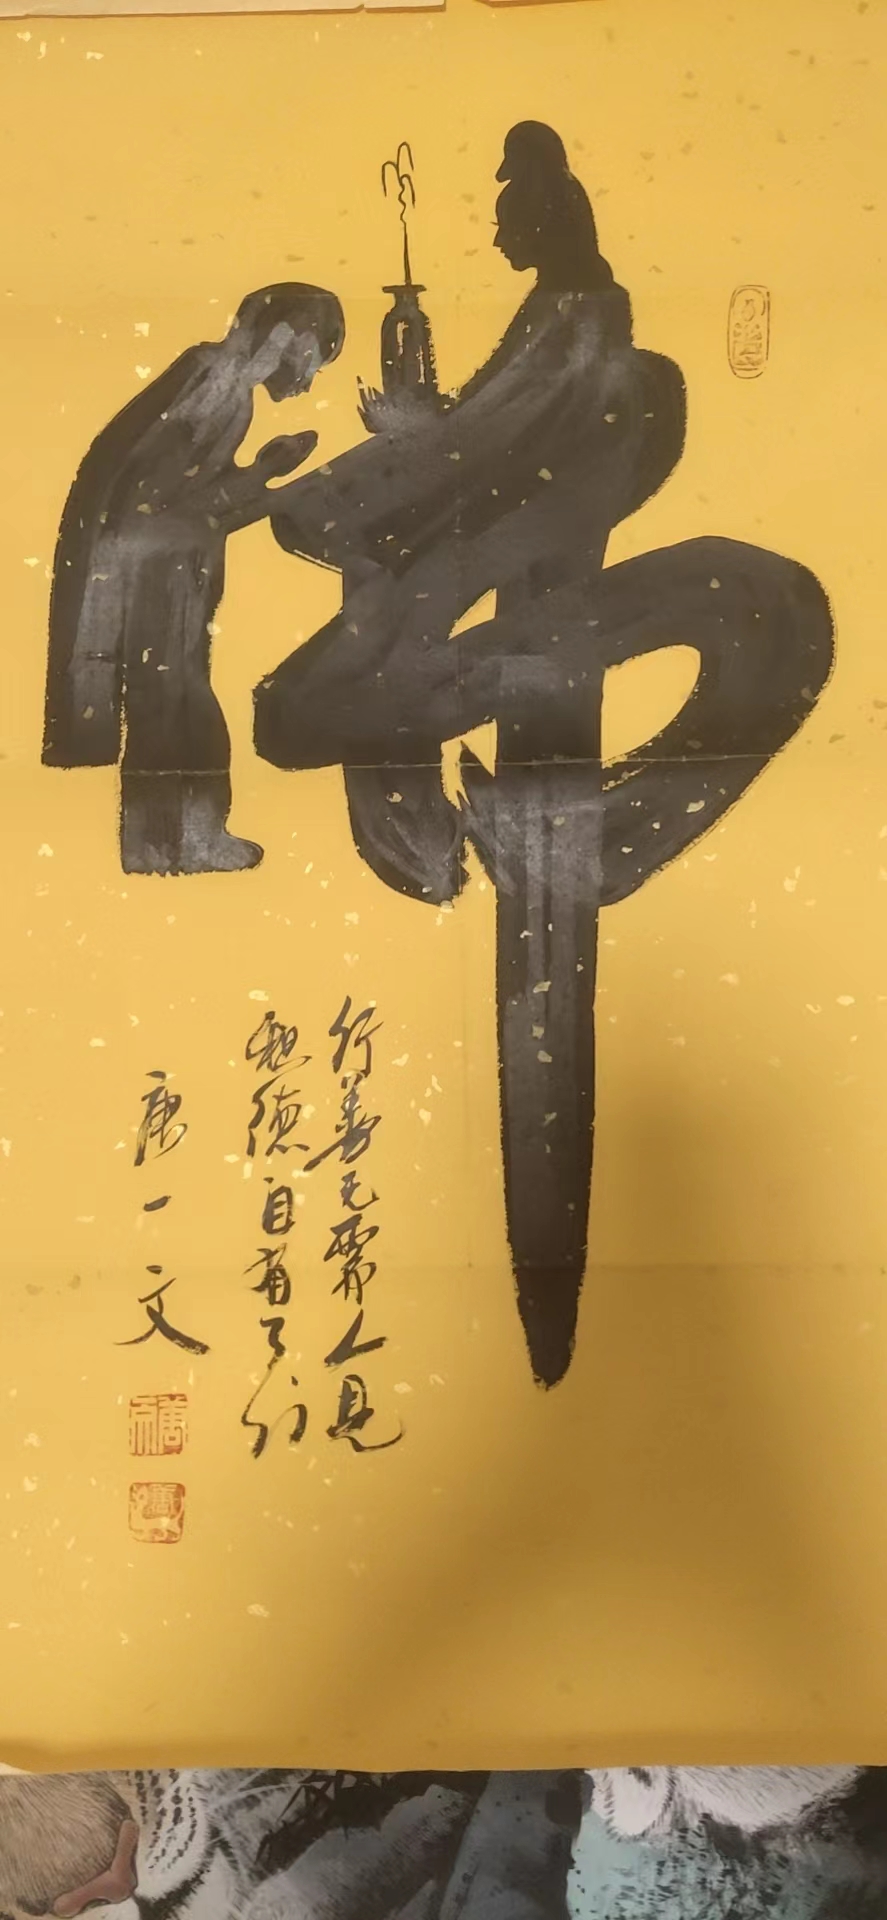 佛
行善无需人見
积德自有天知
唐一文